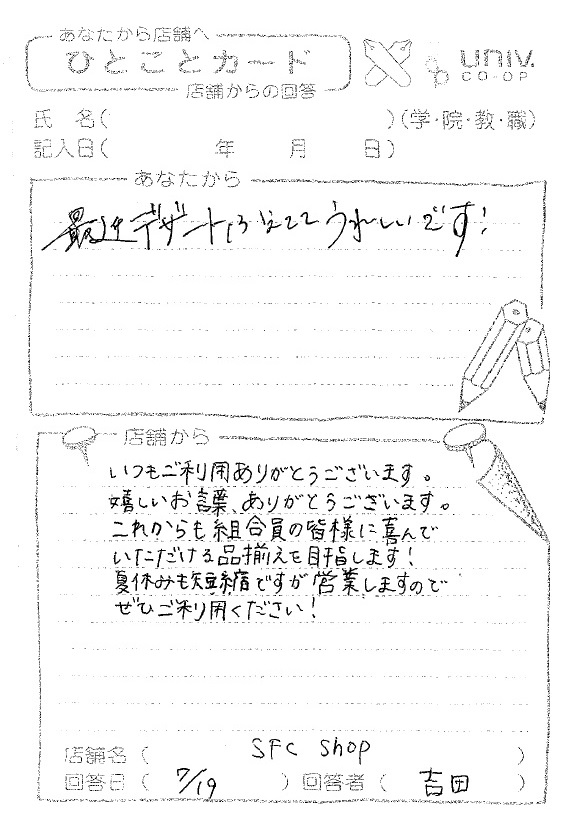 あなたから店舗へ
ひとことカード
店舗からの回答
univ.
CO-OP
氏 名( )(学・院・教・職)
記入日( 年 月 日)
あなたから
最近デザートふえててうれしいです!
店舗から
いつもご利用ありがとうございます。
嬉しいお言葉、ありがとうございます。
これからも組合員の皆様に喜んで
いただける品揃えを目指します!
夏休みも短縮ですが営業しますので
ぜひご利用ください!
店舗名( SFC shop )
回答日( 7/19 ) 回答者( 吉田 )